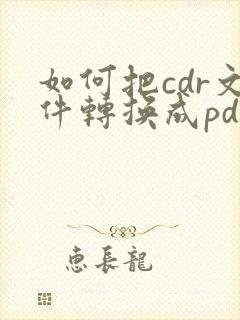 如何把cdr文
件轉換成pd
惠長龍